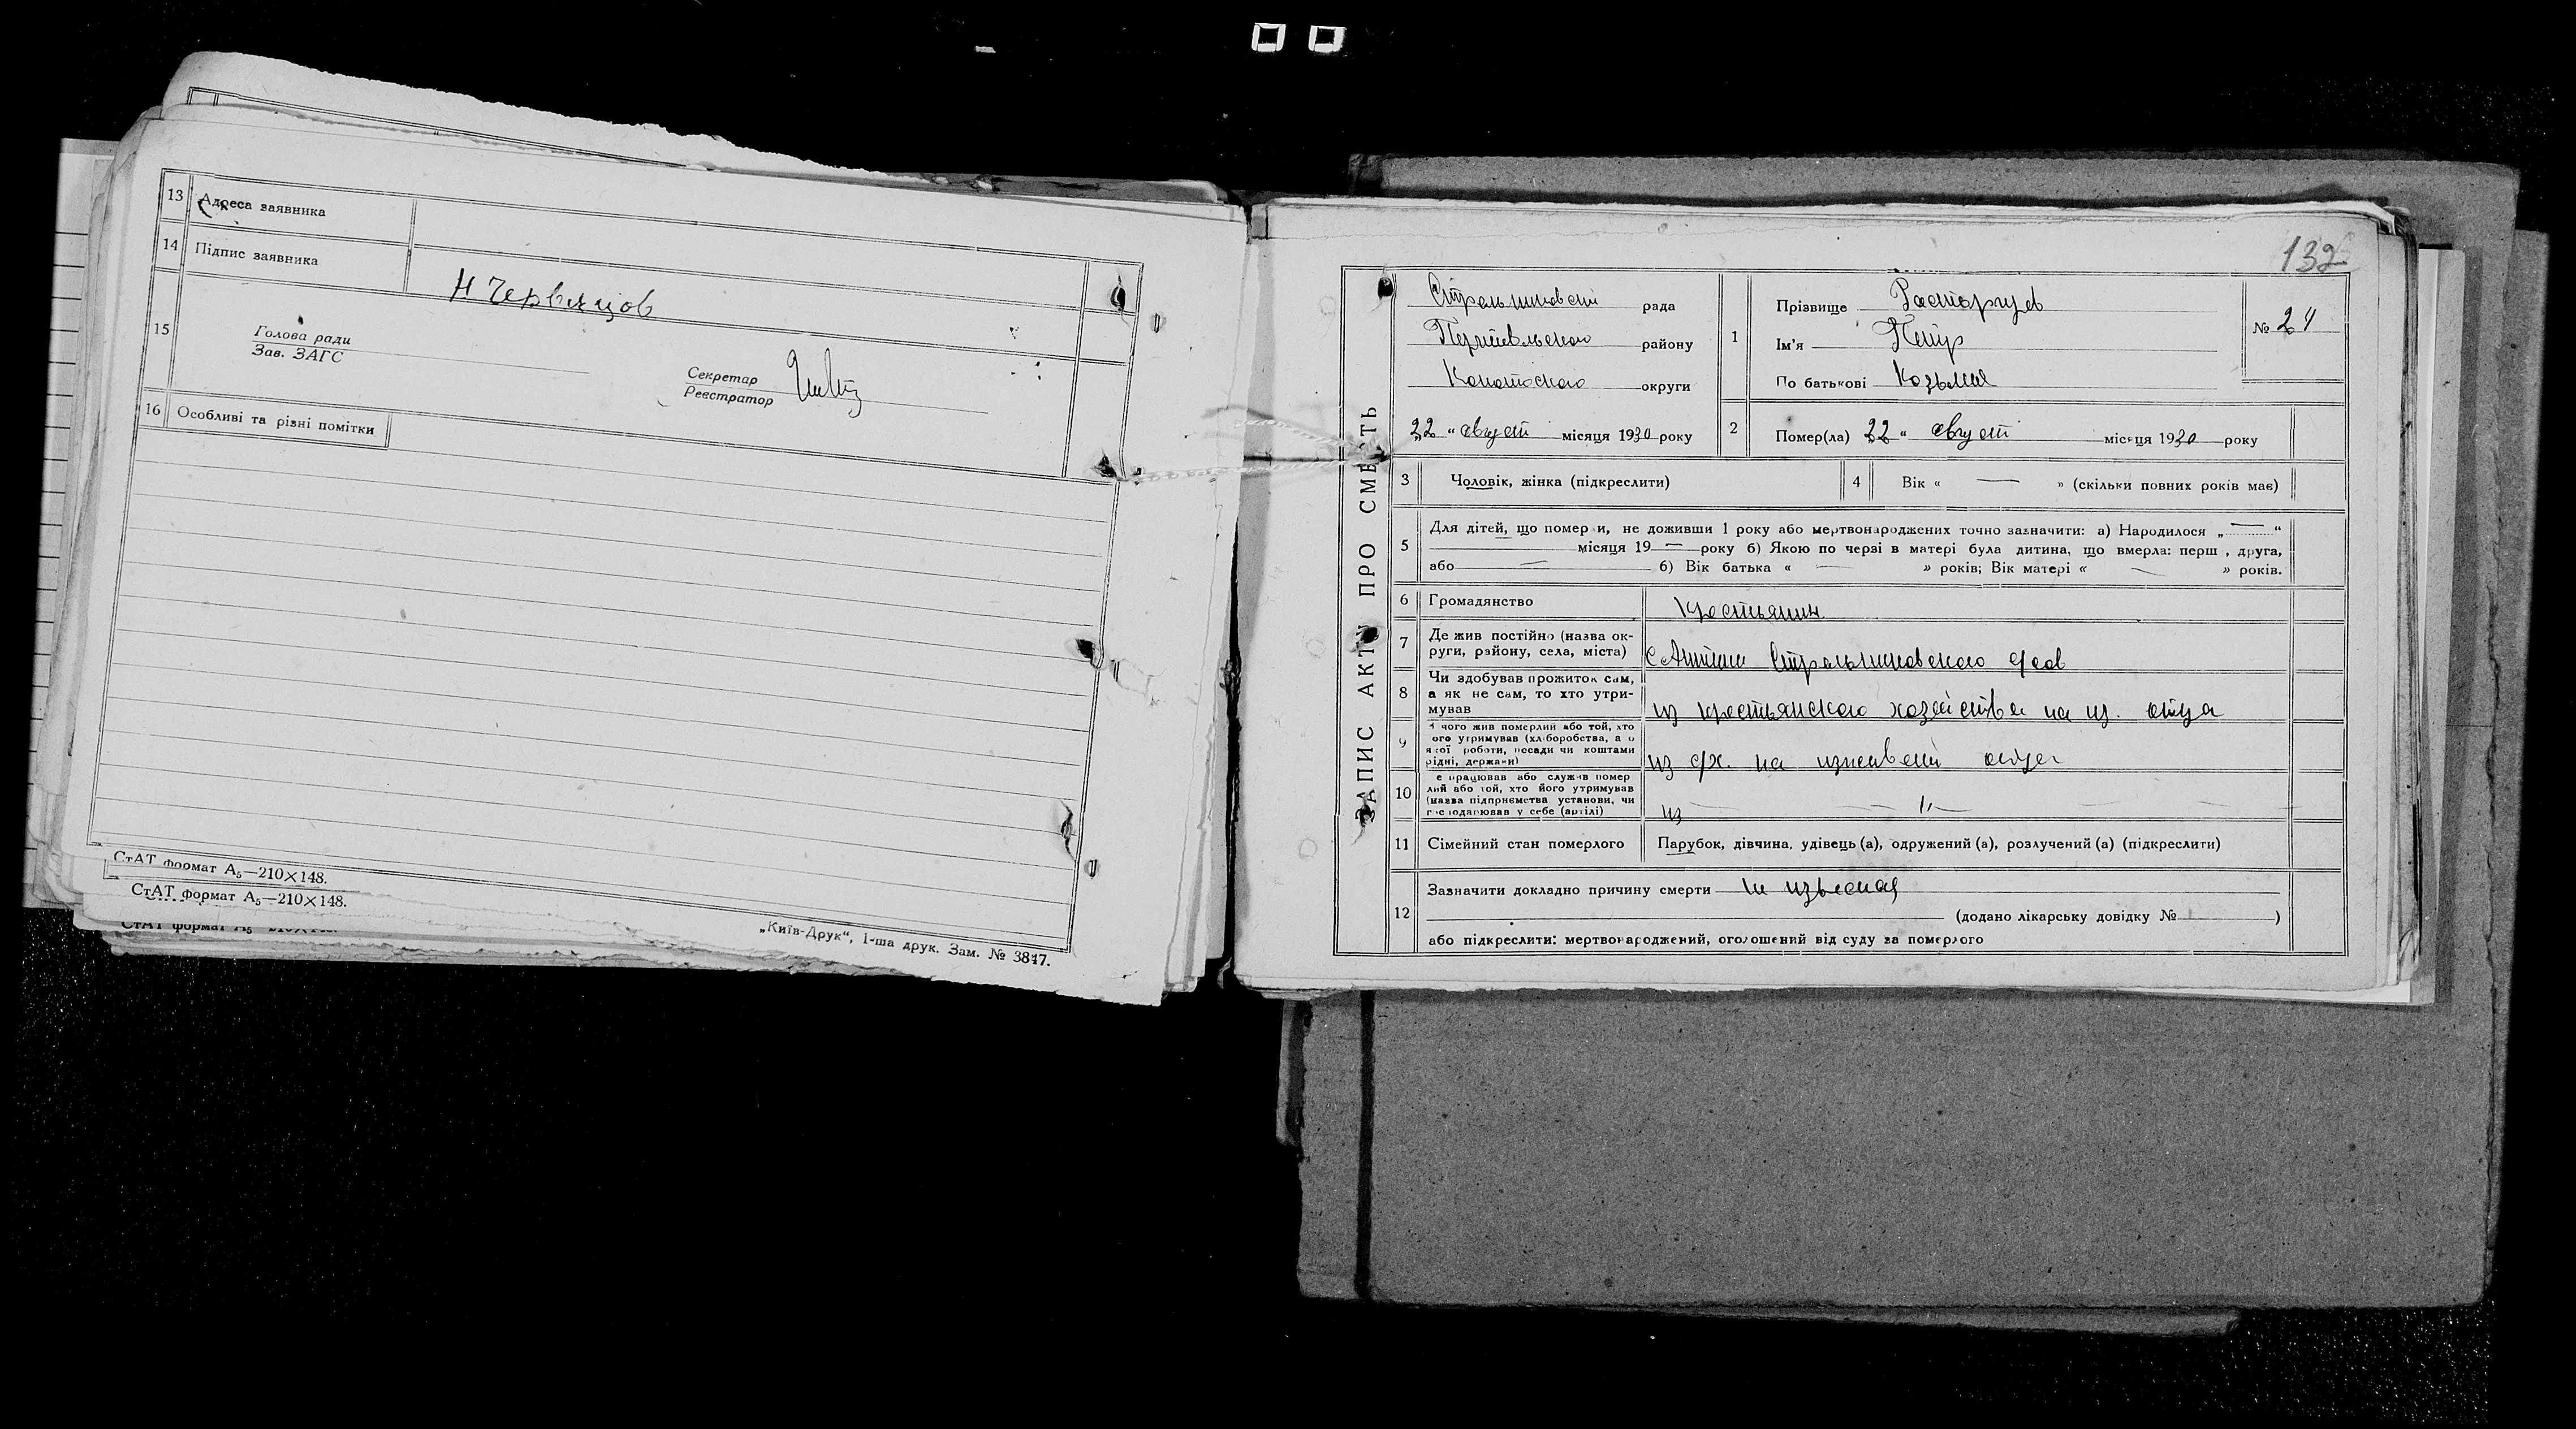 13 Адреса заявника
14 Підпис заявника
Н Червяцов
15
Голова ради
Зав. ЗАГС
Секретар
Реєстратор
16 Особливі та різні помітки
СтАТ формат А5—210×148.
СтАТ формат А5—210×148.
СтАТ формат А5
„Київ-Друк“, 1-ша друк. Зам. № 3847.
132
ЗАПИС АКТУ ПРО СМЕРТЬ
рада
району
Конотоского округи
„22“ август місяця 1930 року
1
Прізвище Расторгуев
Ім'я Петр
По батькові Козьмич
№ 24
2 Помер(ла) 22 “ август місяця 1930 року
3 Чоловік, жінка (підкреслити)
4 Вік « — » (скільки повних років має)
5 Для дітей, що померли, не доживши 1 року або мертвонароджених точно зазначити: а) Народилося „ — “
місяця 19 — року б) Якою по черзі в матері була дитина, що вмерла: перш , друга,
або — б) Вік батька « — » років; Вік матері « — » років.
6 Громадянство крестьянин
7 Де жив постійно (назва ок-
руги, району, села, міста)
8 Чи здобував прожиток сам,
а як не сам, то хто утри-
мував
из крестьянского хозяйства на из. отца
9 З чого жив померлий або той, хто
ого утримував (хліборобства, а о
якої роботи, посади чи коштами
рідні, держави)
из с/х. на иждивении отца
10 е працював або служив помер
лий або той, хто його утримував
(назва підприємства установи, чи
господарював у себе (артілі)
из — — 〃 — — —
11 Сімейний стан померлого
Парубок, дівчина, удівець (а), одружений (а), розлучений (а) (підкреслити)
12 Зазначити докладно причину смерти
(додано лікарську довідку № )
або підкреслити: мертвонароджений, оголошений від суду за померлого